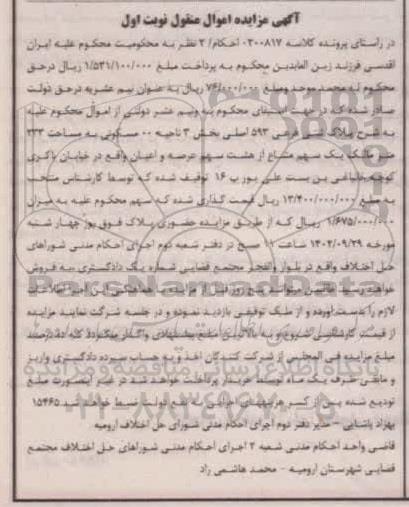 آگهی مزایده اموال منقول نوبت اول
در راستای پرونده کلاسه ۰۳۰۰۸۱۷ احکام/ ۲ نظر به محکومیت محکوم علیه ایران
اقدسی فرزند زین العابدین محکوم به پرداخت مبلغ ۱/۵۳۱/۱۰۰/۰۰۰ ریال درحق
محکوم له محمد موحد ومبلغ ۷۶/۰۰۰/۰۰۰ ریال به عنوان نیم عشریه درحق دولت
صادر شده که در جهت استیفای محکوم به ونیم عشر دولتی از اموال محکوم علیه
به شرح پلاک ثبتی فرعی ۵۹۳ اصلی بخش ۳ ناحیه ۰۰ مسکونی به مساحت ۲۳۳
متر مالک یک سهم مشاع از هشت سهم عرصه و اعیان واقع در خیابان باکری
کوچه خیاطی بن بست علی پور پ ۱۶ توقیف شده که توسط کارشناس منتخب
به مبلغ ۱۳/۴۰۰/۰۰۰/۰۰۰ ریال قیمت گذاری شده که سهم محکوم علیه به میزان
۱/۶۷۵/۰۰۰/۰۰۰ ریال که از طریق مزایده حضوری پلاک فوق روز چهار شنبه
مورخه ۱۴۰۲/۰۹/۲۹ ساعت ۱۱ صبح در دفتر شعبه دوم اجرای احکام مدنی شوراهای
حل اختلاف واقع در بلوار والفجر مجتمع قضایی شماره یک دادگستری به فروش
خواهد رسید متقاضیان میتوانند پنج روز قبل از مزایده با هماهنگی این اجرا اطلاعات
لازم را بدست آورده و از ملک توقیفی بازدید نموده و در جلسه شرکت نمایند مزایده
از قیمت کارشناسی شروع و به بالاترین مبلغ پیشنهادی واگذار میگردد که ده درصد
مبلغ مزایده فی المجلس از شرکت کنندگان اخذ و به حساب سپرده دادگستری واریز
و مابقی ظرف یک ماه توسط خریدار پرداخت خواهد شد در غیر اینصورت مبلغ
تودیع شده پس از کسر هزینههای اجرایی به نفع دولت ضبط خواهد شد. ۱۵۴۶۵
بهزاد پاشایی - مدیر دفتر دوم اجرای احکام مدنی شورای حل اختلاف ارومیه
قاضی واحد احکام مدنی شعبه ۲ اجرای احکام مدنی شوراهای حل اختلاف مجتمع
قضایی شهرستان ارومیه - محمد هاشمی راد
ParsNamadData
پایگاه اطلاع رسانی مناقصه و مزایده
۰۲۱-۸۸۳۴۹۶۷۰-۵